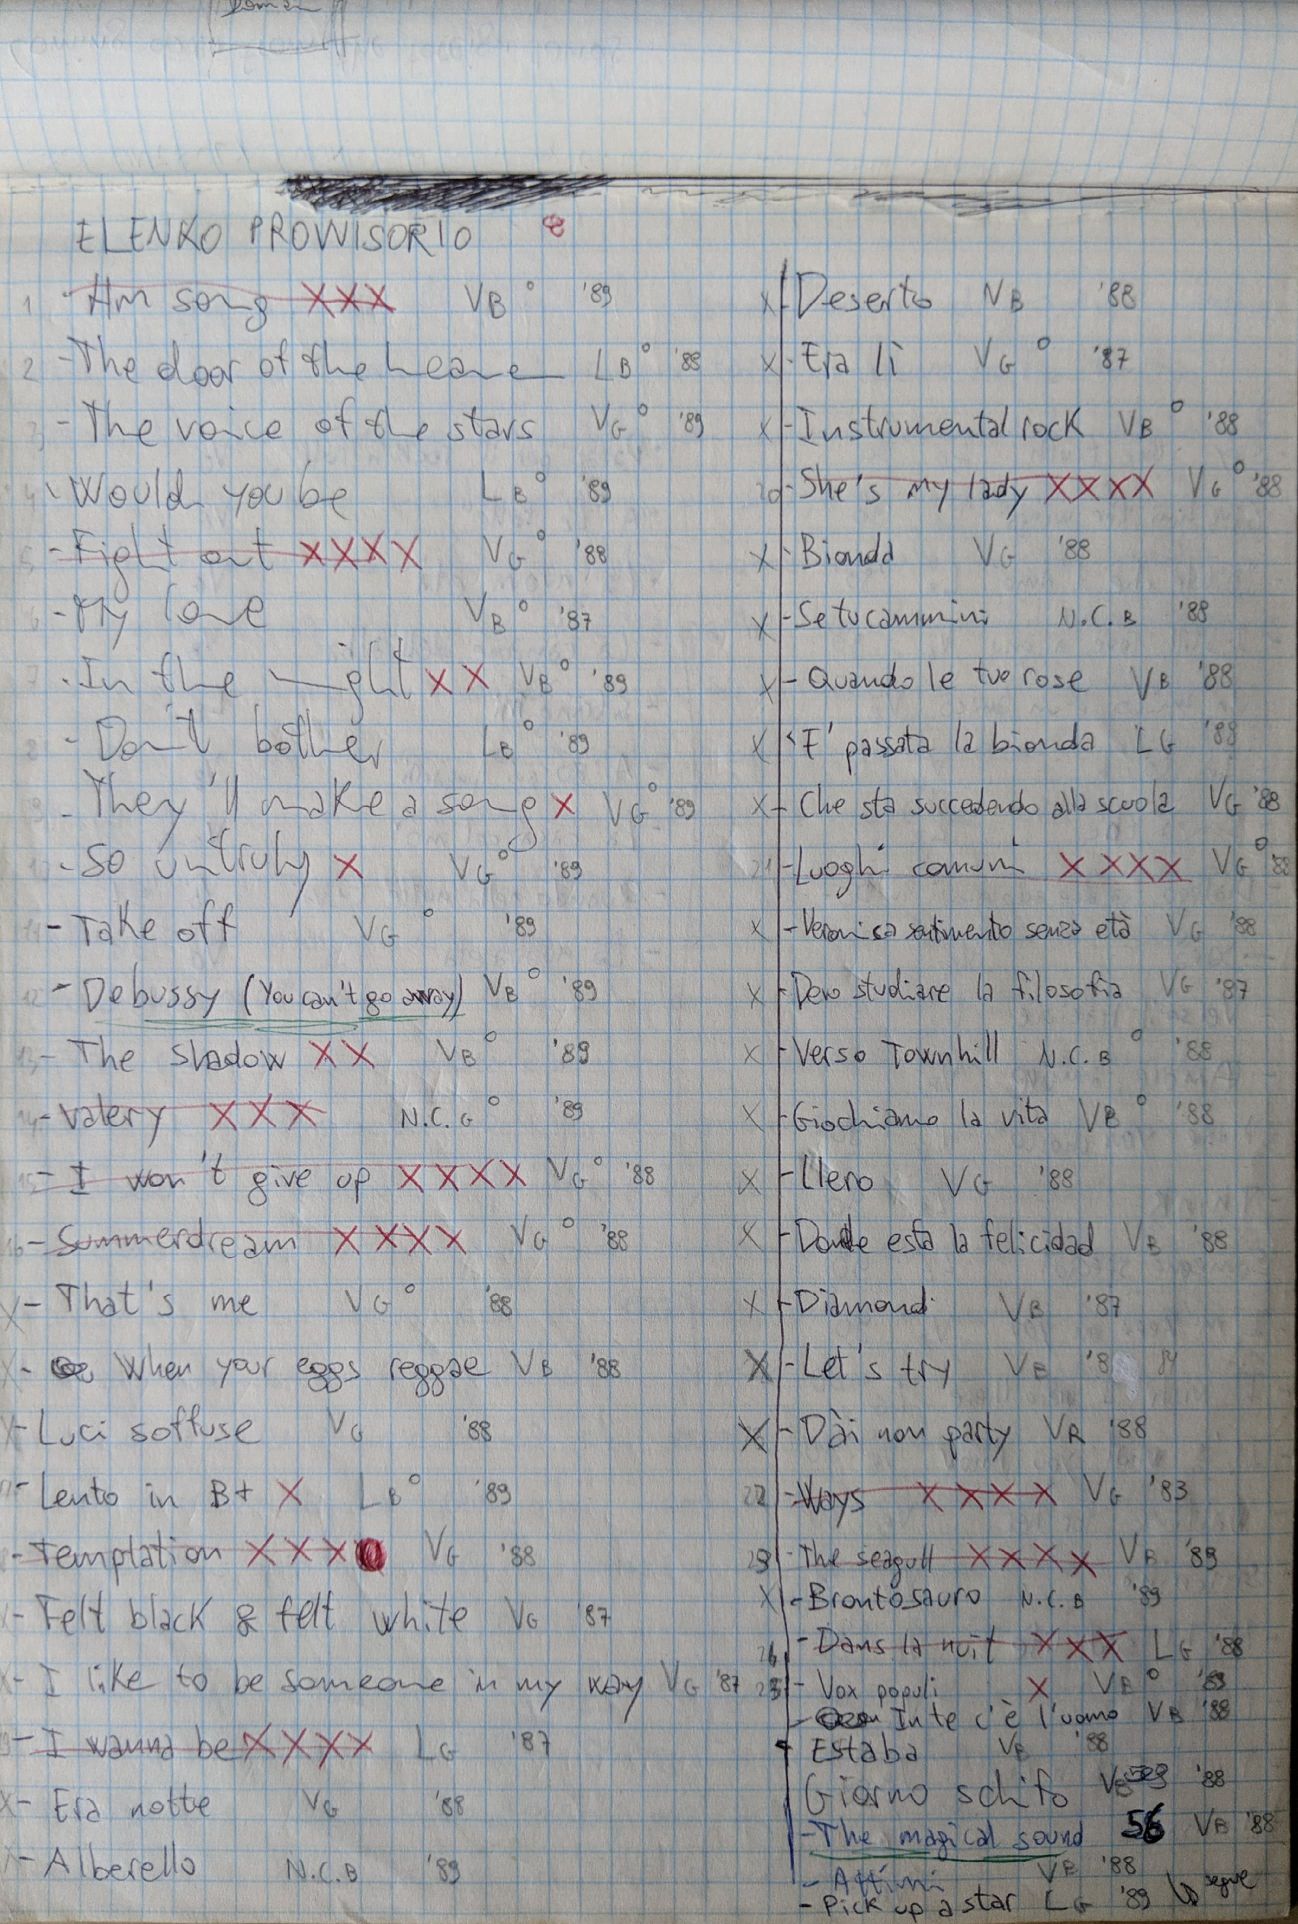 Domani
ELENKO PROVVISORIO
1 - Hm song XXX VB° '89
2 - The door of the heaven LB° '88
3 - The voice of the stars VG° '89
4 - Would you be LB° '89
5 - Fight out XXXX VG° '88
6 - My love VB° '87
7 - In the night XX VB° '89
8 - Don't bother LB° '89
9 - They'll make a song X VG° '89
10 - So untruly X VG° '89
11 - Take off VG° '89
12 - Debussy (You can't go away) VB° '89
13 - The shadow XX VB° '89
14 - Valery XXX N.C.G° '89
15 - I won't give up XXXX VG° '88
16 - Summerdream XXXX VG° '88
X - That's me VG° '88
X - When your eggs reggae VB '88
X - Luci soffuse VG '88
17 - Lento in B+ X LB° '89
- Temptation XXX VG '88
X - Felt black & felt white VG '87
X - I like to be someone in my way VG '87
19 - I wanna be XXXX LG '87
X - Era notte VG '88
X - Alberello N.C.B '89
X - Deserto NB '88
X - Era lì VG° '87
X - Instrumental rock VB° '88
20 - She's my lady XXXX VG° '88
X - Bionda VG '88
X - Se tu cammini N.C.B '88
X - Quando le tue rose VB '88
X - E' passata la bionda LG '88
X - Che sta succedendo alla scuola VG '88
21 - Luoghi comuni XXXX VG° '88
X - Veronica sentimento senza età VG '88
X - Devo studiare la filosofia VG '87
X - Verso Townhill N.C.B° '88
X - Giochiamo la vita VB° '88
X - Llero VG '88
X - Donde esta la felicidad VB '88
X - Diamond VB '87
X - Let's try VB '8
X - Dài non party VB '88
22 - Ways XXXX VG '83
23 - The seagull XXXX VB '89
X - Brontosauro N.C.B '89
24 - Dans la nuit XXX LG '88
25 - Vox populi X VB° '89
- In te c'è l'uomo VB '88
- Estaba VB '88
Giorno schifo VB '88
- The magical sound 56 VB '88
- Attimi VB '88
- Pick up a star LG '89 segue